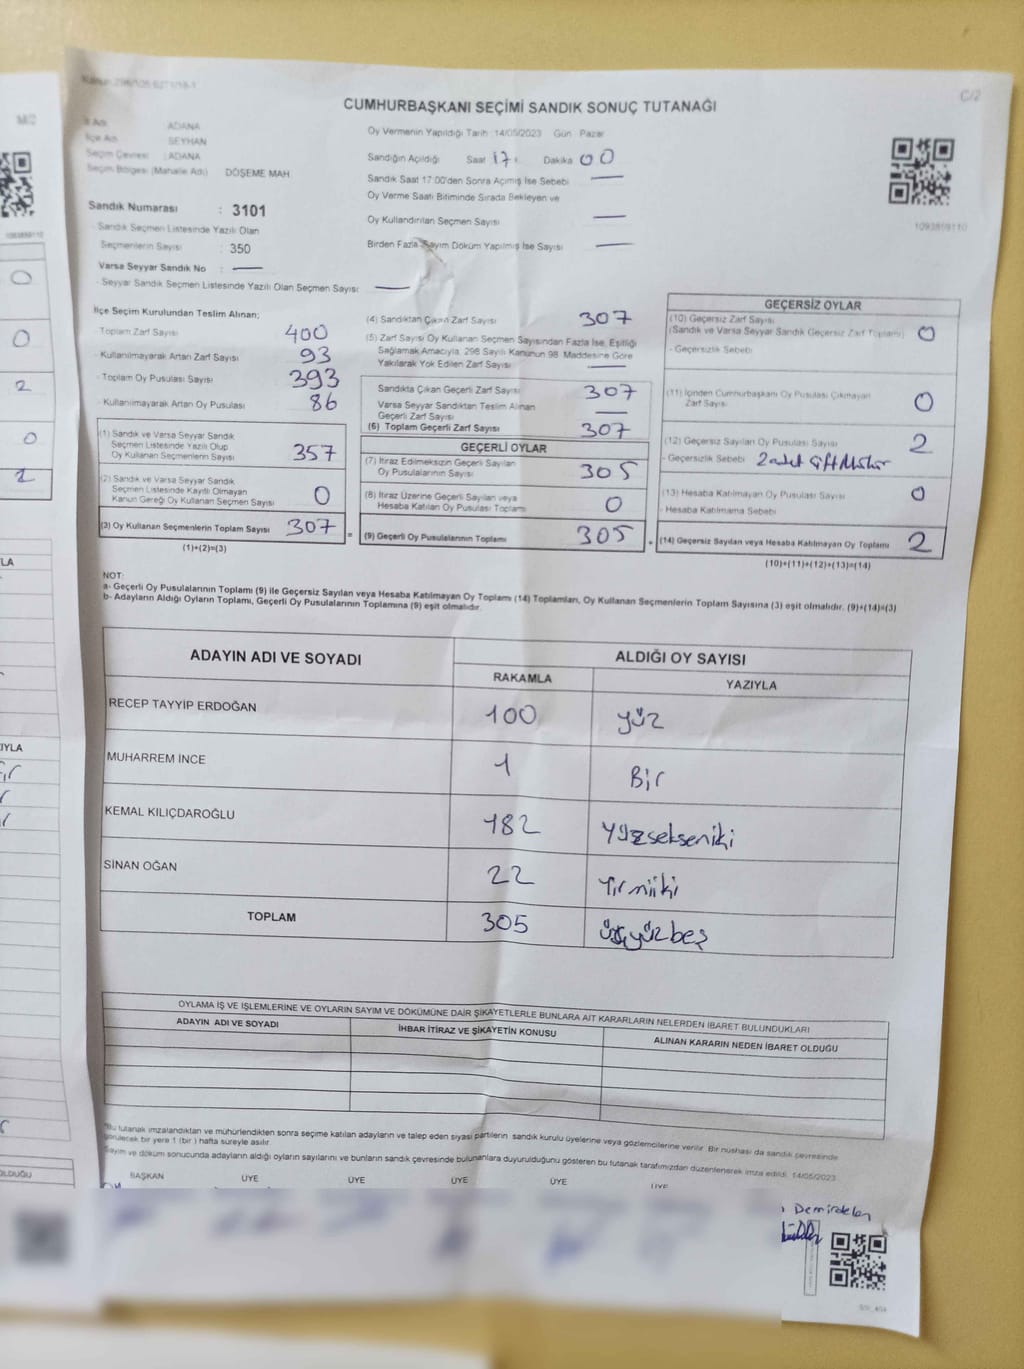 C/2
CUMHURBAŞKANI SEÇİMİ SANDIK SONUÇ TUTANAĞI
İl Adı : ADANA
İlçe Adı : SEYHAN
Seçim Çevresi : ADANA
Seçim Bölgesi (Mahalle Adı) DÖŞEME MAH.
Sandık Numarası : 3101
- Sandık Seçmen Listesinde Yazılı Olan
Seçmenlerin Sayısı : 350
Varsa Seyyar Sandık No : —
- Seyyar Sandık Seçmen Listesinde Yazılı Olan Seçmen Sayısı: —
Oy Vermenin Yapıldığı Tarih :14/05/2023 Gün Pazar
Sandığın Açıldığı Saat 17: Dakika 00
Sandık Saat 17:00'den Sonra Açımış İse Sebebi —
Oy Verme Saati Bitiminde Sırada Bekleyen ve
Oy Kullandırılan Seçmen Sayısı —
Birden Fazla Sayım Döküm Yapılmış İse Sayısı —
1093859110
İlçe Seçim Kurulundan Teslim Alınan;
- Toplam Zarf Sayısı 400
- Kullanılmayarak Artan Zarf Sayısı 93
- Toplam Oy Pusulası Sayısı 393
- Kullanılmayarak Artan Oy Pusulası 86
(1) Sandık ve Varsa Seyyar Sandık
Seçmen Listesinde Yazılı Olup
Oy Kullanan Seçmenlerin Sayısı 357
(2) Sandık ve Varsa Seyyar Sandık
Seçmen Listesinde Kayıtlı Olmayan
Kanun Gereği Oy Kullanan Seçmen Sayısı 0
(3) Oy Kullanan Seçmenlerin Toplam Sayısı 307
(1)+(2)=(3)
(4) Sandıktan Çıkan Zarf Sayısı 307
(5) Zarf Sayısı Oy Kullanan Seçmen Sayısından Fazla İse, Eşitliği
Sağlamak Amacıyla, 298 Sayılı Kanunun 98. Maddesine Göre
Yakılarak Yok Edilen Zarf Sayısı —
Sandıkta Çıkan Geçerli Zarf Sayısı 307
Varsa Seyyar Sandıktan Teslim Alınan
Geçerli Zarf Sayısı —
(6) Toplam Geçerli Zarf Sayısı 307
GEÇERLİ OYLAR
(7) İtiraz Edilmeksizin Geçerli Sayılan
Oy Pusulalarının Sayısı 305
(8) İtiraz Üzerine Geçerli Sayılan veya
Hesaba Katılan Oy Pusulası Toplamı 0
(9) Geçerli Oy Pusulalarının Toplamı 305
GEÇERSİZ OYLAR
(10) Geçersiz Zarf Sayısı
(Sandık ve Varsa Seyyar Sandık Geçersiz Zarf Toplamı) 0
- Geçersizlik Sebebi
(11) İçinden Cumhurbaşkanı Oy Pusulası Çıkmayan
Zarf Sayısı 0
(12) Geçersiz Sayılan Oy Pusulası Sayısı 2
- Geçersizlik Sebebi 2 adet Çift Mühür
(13) Hesaba Katılmayan Oy Pusulası Sayısı 0
- Hesaba Katılmama Sebebi
(14) Geçersiz Sayılan veya Hesaba Katılmayan Oy Toplamı 2
(10)+(11)+(12)+(13)=(14)
NOT:
a- Geçerli Oy Pusulalarının Toplamı (9) ile Geçersiz Sayılan veya Hesaba Katılmayan Oy Toplamı (14) Toplamları, Oy Kullanan Seçmenlerin Toplam Sayısına (3) eşit olmalıdır. (9)+(14)=(3)
b- Adayların Aldığı Oyların Toplamı, Geçerli Oy Pusulalarının Toplamına (9) eşit olmalıdır.
ADAYIN ADI VE SOYADI ALDIĞI OY SAYISI
RAKAMLA YAZIYLA
RECEP TAYYİP ERDOĞAN 100 yüz
MUHARREM İNCE 1 Bir
KEMAL KILIÇDAROĞLU 182 Yüzsekseniki
SİNAN OĞAN 22 Yirmiiki
TOPLAM 305 üçyüzbeş
OYLAMA İŞ VE İŞLEMLERİNE VE OYLARIN SAYIM VE DÖKÜMÜNE DAİR ŞİKAYETLERLE BUNLARA AİT KARARLARIN NELERDEN İBARET BULUNDUKLARI
ADAYIN ADI VE SOYADI İHBAR İTİRAZ VE ŞİKAYETİN KONUSU ALINAN KARARIN NEDEN İBARET OLDUĞU
*Bu tutanak imzalandıktan ve mühürlendikten sonra seçime katılan adayların ve talep eden siyasi partilerin sandık kurulu üyelerine veya gözlemcilerine verilir. Bir nüshası da sandık çevresinde
görülecek bir yere 1 (bir ) hafta süreyle asılır.
Sayım ve döküm sonucunda adayların aldığı oyların sayılarını ve bunların sandık çevresinde bulunanlara duyurulduğunu gösteren bu tutanak tarafımızdan düzenlenerek imza edildi. 14/05/2023
BAŞKAN ÜYE ÜYE ÜYE ÜYE ÜYE